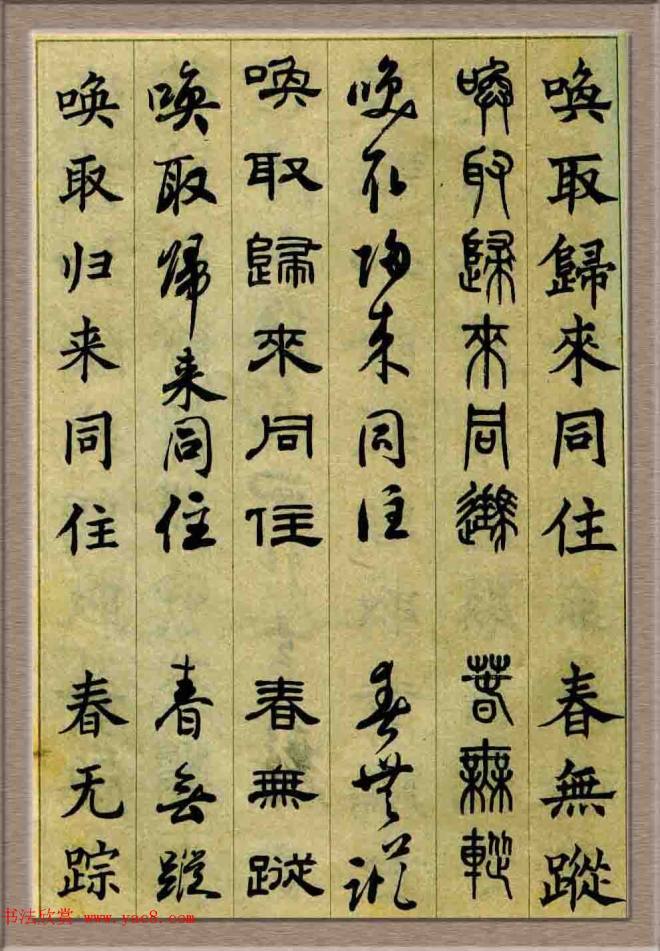 喚取歸來同住 春無蹤
喚取歸來同𨓚 萅無蹤
喚取歸来同住 春無蹤
喚取歸來同住 春無蹤
喚取歸来同住 春無蹤
唤取归来同住 春无踪
书法欣赏 www.yac8.com